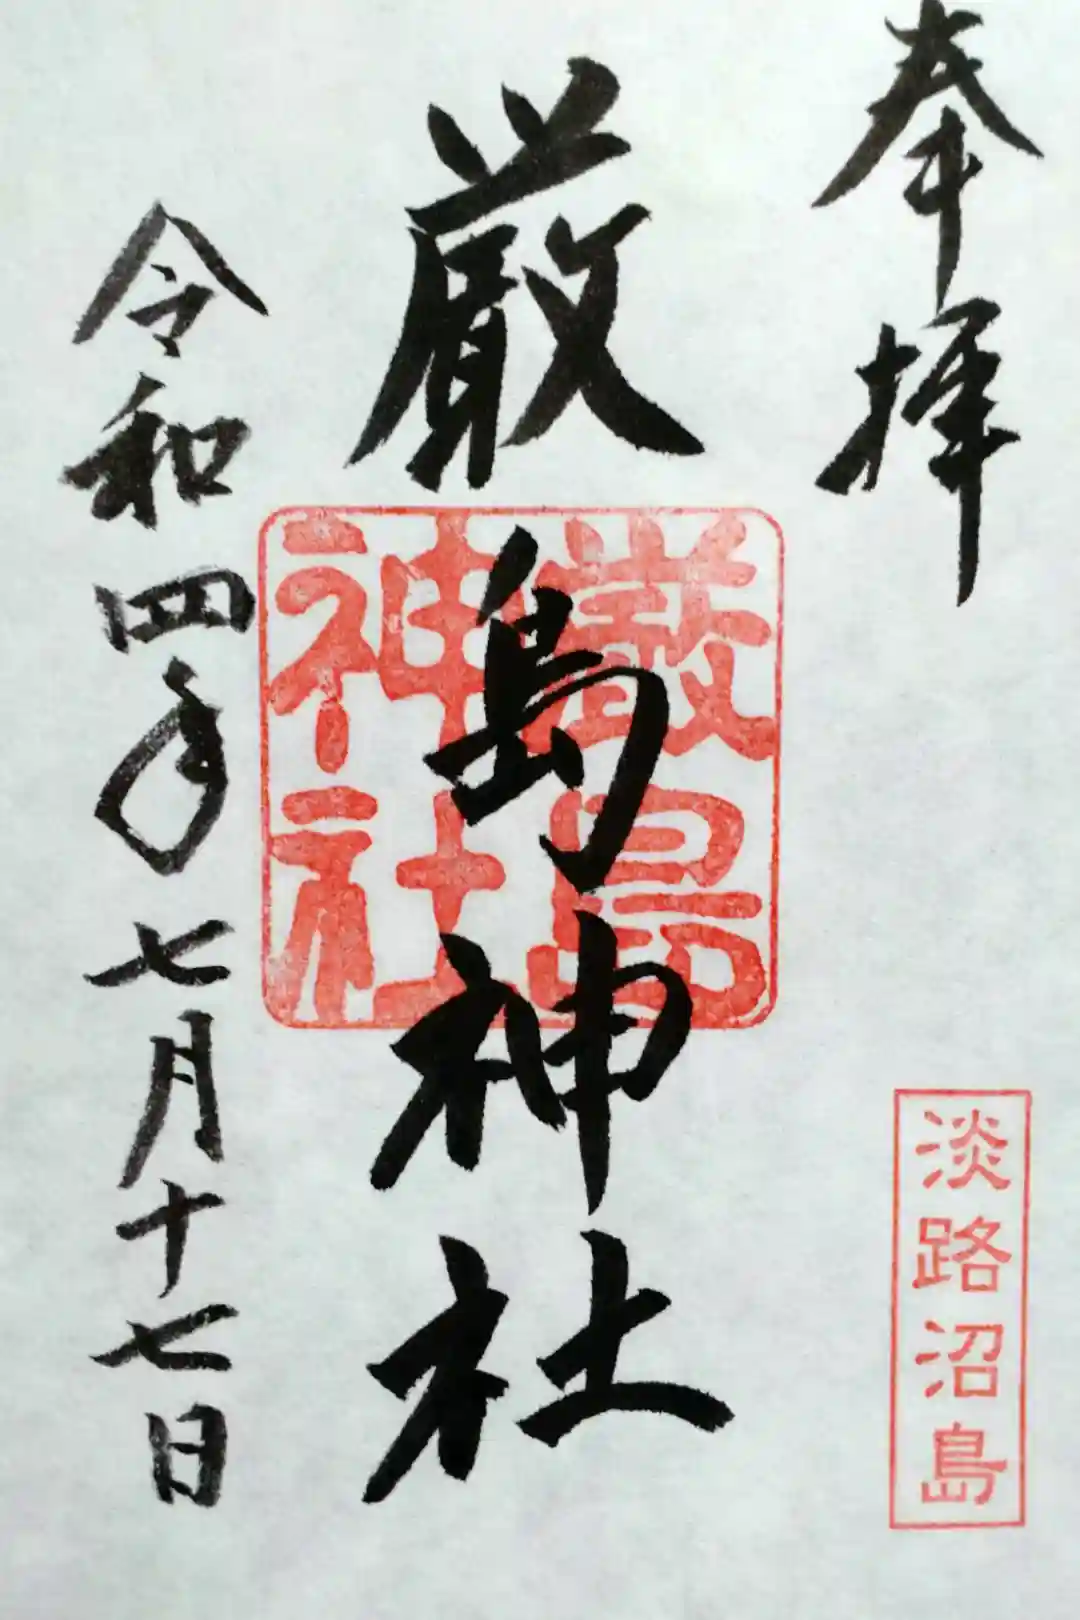 奉拝
淡路沼島
厳島神社
厳島
神社
令和四年七月十七日